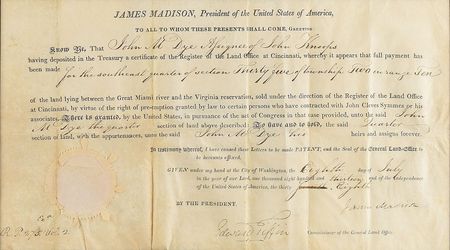 JAMES MADISON, President of the United States of America,
TO ALL TO WHOM THESE PRESENTS SHALL COME, GREETING:
Know Ye, That John M Dye Assignee of John Knoops
having deposited in the Treasury a certificate of the Register of the Land Office at Cincinnati, whereby it appears that full payment has
been made for the southeast quarter of section Thirty five of township Two in range Ten
of the land lying between the Great Miami river and the Virginia reservation, sold under the direction of the Register of the Land Office
at Cincinnati, by virtue of the right of pre-emption granted by law to certain persons who have contracted with John Cleves Symmes or his
associates. There is granted, by the United States, in pursuance of the act of Congress in that case provided, unto the said John
M Dye the quarter section of land above described: To have and to hold, the said quarter
section of land, with the appurtenances, unto the said John M Dye his heirs and assigns forever.
In testimony whereof, I have caused these Letters to be made PATENT, and the Seal of the General Land-Office to
be hereunto affixed.
GIVEN under my hand at the City of Washington, the Eighth day of July
in the year of our Lord, one thousand eight hundred and thirteen and of the Independence
of the United States of America, the thirty Eighth
BY THE PRESIDENT.
James Madison
Edward Tiffin Commissioner of the General Land Office.
Vol. 2.